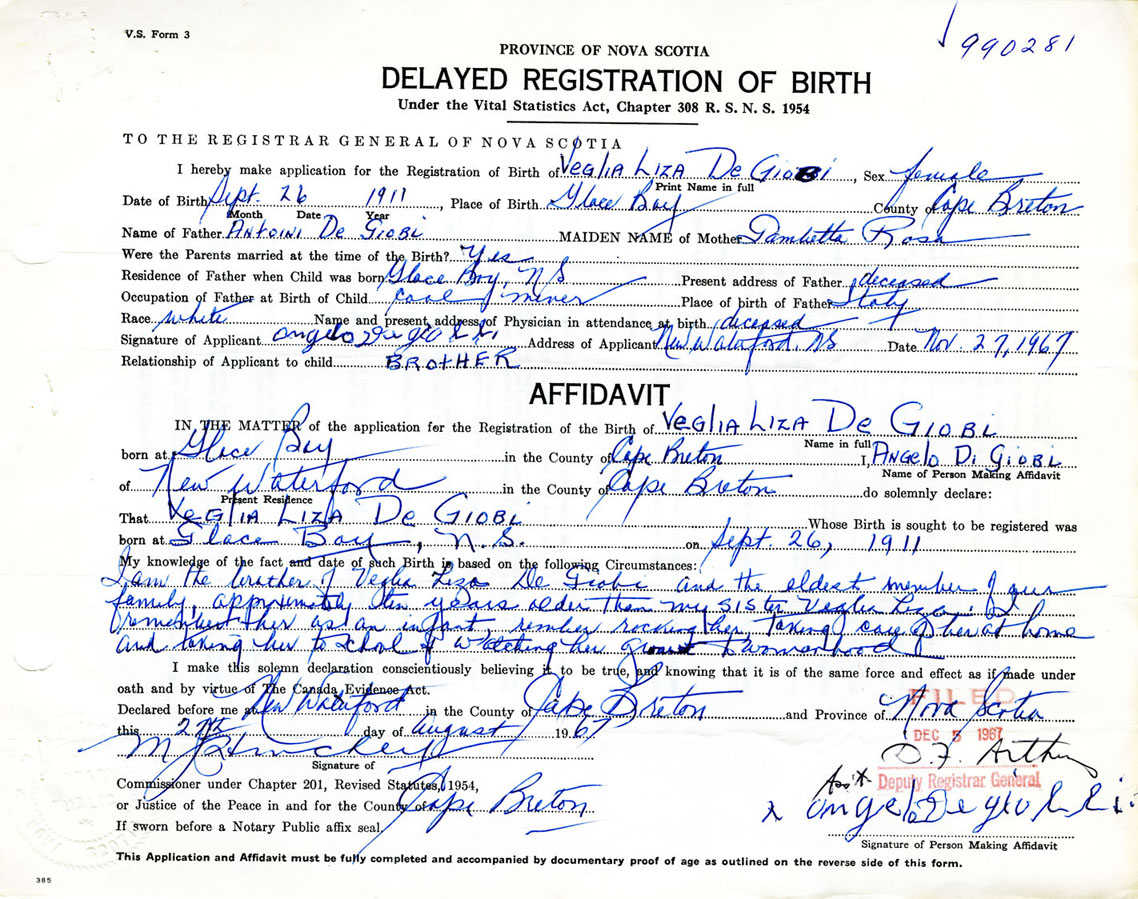 V.S. Form 3
990281
PROVINCE OF NOVA SCOTIA
DELAYED REGISTRATION OF BIRTH
Under the Vital Statistics Act, Chapter 308 R. S. N. S. 1954
TO THE REGISTRAR GENERAL OF NOVA SCOTIA
I hereby make application for the Registration of Birth of VEGLIA LIZA DE GIOBI, Sex female
Print Name in full
Date of Birth Sept. 26 1911, Place of Birth Glace Bay County of Cape Breton
Month Date Year
Name of Father ANTOINI DE GIOBI MAIDEN NAME of Mother Gambetta Rosa
Were the Parents married at the time of the Birth? Yes
Residence of Father when Child was born Glace Bay, NS Present address of Father deceased
Occupation of Father at Birth of Child coal miner Place of birth of Father Italy
Race white Name and present address of Physician in attendance at birth deceased
Signature of Applicant Address of Applicant New Waterford, NS Date Nov. 27, 1967
Relationship of Applicant to child BROTHER
AFFIDAVIT
IN THE MATTER of the application for the Registration of the Birth of VEGLIA LIZA DE GIOBI
Name in full
born at Glace Bay in the County of Cape Breton I, ANGELO DI GIOBI
Name of Person Making Affidavit
of New Waterford in the County of Cape Breton do solemnly declare:
Present Residence
That VEGLIA LIZA DE GIOBI Whose Birth is sought to be registered was
born at Glace Bay, N.S. on Sept. 26, 1911
My knowledge of the fact and date of such Birth is based on the following Circumstances:
I am the brother of Veglia Liza De Giobi and the eldest member of our
family, approximately ten years older than my sister Veglia Liza. I
remember her as an infant rember rocking her, taking care of her at home
and taking her to school & watching her to womanhood
I make this solemn declaration conscientiously believing it to be true, and knowing that it is of the same force and effect as if made under
oath and by virtue of The Canada Evidence Act.
Declared before me at New Waterford in the County of Cape Breton and Province of Nova Scotia
FILED
this 27th day of August 1967
DEC 5 1967
D.F. Arthur
Signature of
Ass't Deputy Registrar General
Commissioner under Chapter 201, Revised Statutes, 1954,
or Justice of the Peace in and for the County of Cape Breton
x
If sworn before a Notary Public affix seal.
Signature of Person Making Affidavit
This Application and Affidavit must be fully completed and accompanied by documentary proof of age as outlined on the reverse side of this form.
385